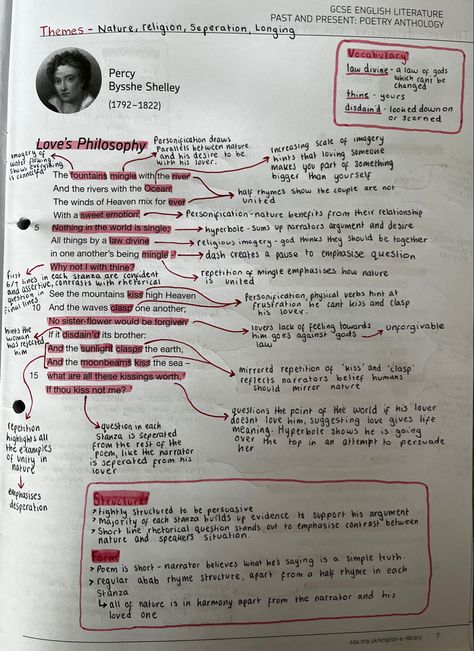 GCSE ENGLISH LITERATURE
PAST AND PRESENT: POETRY ANTHOLOGY
Themes - Nature, religion, Seperation, Longing
Percy
Bysshe Shelley
(1792–1822)
Vocabulary
law divine - a law of gods
which cant be
changed
thine - yours
disdain'd - looked down on
or scorned
Love's Philosophy
imagery of
water flowing
shows everything
is connected
Personification draws
Parallels between nature
and his desire to be
with his lover.
increasing scale of imagery
hints that loving someone
makes you part of something
bigger than yourself
The fountains mingle with the river
And the rivers with the Ocean,
The winds of Heaven mix for ever
With a sweet emotion;
5 Nothing in the world is single;
All things by a law divine
in one another's being mingle –
Why not I with thine?
half rhymes show the couple are not
united
Personification - nature benefits from their relationship
hyperbole - sums up narrators argument and desire
religious imagery - god thinks they should be together
dash creates a pause to emphasise question
repetition of mingle emphasises how nature
is united
first
6/7 lines in each stanza are confident
and assertive, contrasts with rhetorical
question in
final lines
See the mountains kiss high Heaven
10 And the waves clasp one another;
No sister-flower would be forgiven
If it disdain'd its brother:
And the sunlight clasps the earth,
And the moonbeams kiss the sea –
15 what are all these kissings worth,
If thou kiss not me?
Personification, physical verbs hint at
frustration he cant kiss and clasp
his lover.
lovers lack of feeling towards
him goes against gods
law
unforgivable
hints the
woman
has rejected
him
mirrored repetition of 'kiss' and 'clasp'
reflects narrators belief humans
should mirror nature
questions the point of the world if his lover
doesnt love him, suggesting love gives life
meaning. Hyperbole shows he is going
over the top in an attempt to persuade
her
repetition
highlights all
the examples
of unity in
nature
emphasises
desperation
question in each
Stanza is seperated
from the rest of the
poem, like the narrator
is seperated from his
lover
Structure
> tightly structured to be persuasive
> Majority of each stanza builds up evidence to support his argument
> Short line rhetorical question stands out to emphasise contrast between
nature and speakers situation.
Form
> Poem is short - narrator believes what he's saying is a simple truth
> regular abab rhyme structure, apart from a half rhyme in each
Stanza
↳ all of nature is in harmony apart from the narrator and his
loved one
aqa.org.uk/english-e-library 7